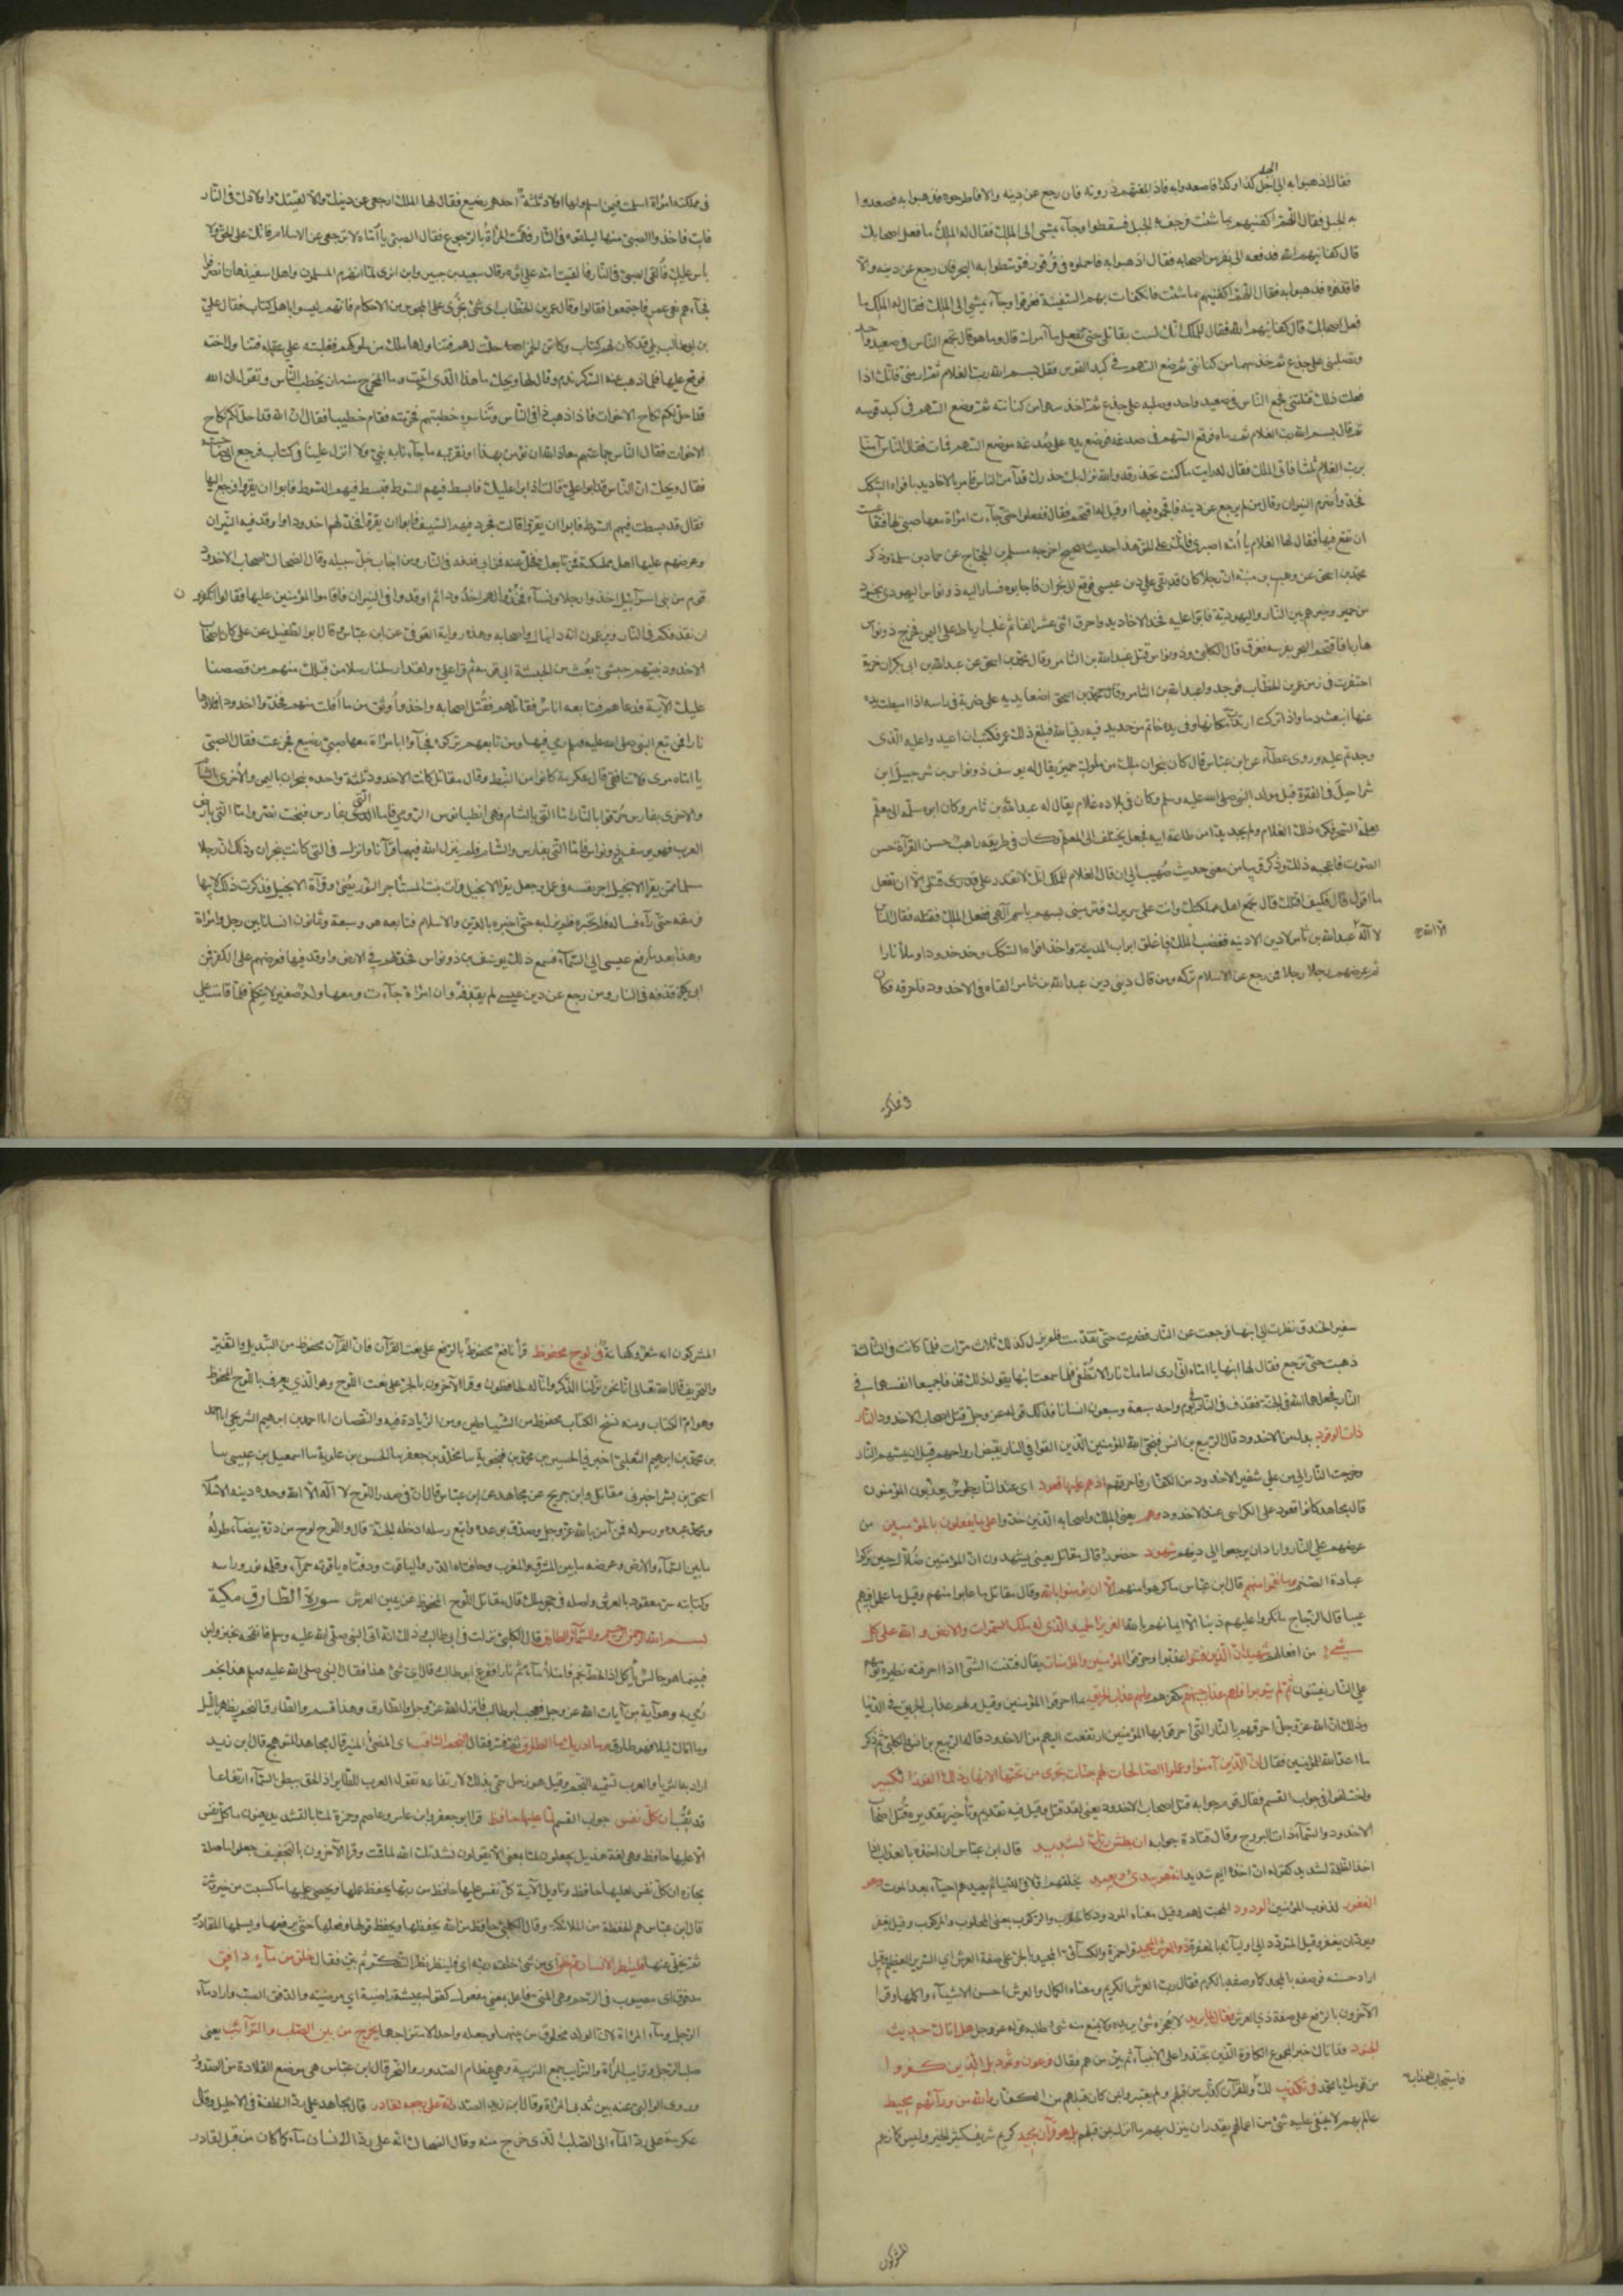 فقال اذهبوا به الى جبل كذا وكذا فاصعدوا به فاذا بلغتم ذروته فان رجع عن دينه والا فاطرحوه فذهبوا به فصعدوا
به الجبل فقال اللهم اكفنيهم بما شئت فرجف بهم الجبل فسقطوا وجآء يمشى الى الملك فقال له الملك ما فعل اصحابك
قال كفانيهم الله فدفعه الى نفر من اصحابه فقال اذهبوا به فاحملوه فى قرقور فتوسطوا به البحر فان رجع عن دينه والا
فاقذفوه فذهبوا به فقال اللهم اكفنيهم بما شئت فانكفات بهم السفينة فغرقوا وجآء يمشى الى الملك فقال له الملك ما
فعل اصحابك قال كفانيهم الله فقال للملك انك لست بقاتلى حتى تفعل ما آمرك به قال وما هو قال تجمع الناس فى صعيد واحد
وتصلبنى على جذع ثم خذ سهما من كنانتى ثم ضع السهم فى كبد القوس ثم قل بسم الله رب الغلام ثم ارمنى فانك اذا
فعلت ذلك قتلتنى فجمع الناس فى صعيد واحد وصلبه على جذع ثم اخذ سهما من كنانته ثم وضع السهم فى كبد قوسه
ثم قال بسم الله رب الغلام ثم رماه فوقع السهم فى صدغه فوضع يده على صدغه موضع السهم فمات فقال الناس آمنا
برب الغلام ثلثا فاتى الملك فقيل له ارايت ما كنت تحذر قد والله نزل بك حذرك قد آمن الناس فامر بالاخاديد بافواه السكك
فخدت واضرم النيران وقال من لم يرجع عن دينه فاقحموه فيها او قيل له اقتحم فقال ففعلوا حتى جآءت امراة معها صبى لها فتقاعست
ان تقع فيها فقال لها الغلام يا امه اصبرى فانك على الحق هذا حديث صحيح اخرجه مسلم بن الحجاج عن حماد بن سلمة وذكر
محمد بن اسحق عن وهب بن منبه ان رجلا كان قد بقى على دين عيسى فوقع الى نجران فاجابوه فسار اليه ذو نواس اليهودى بجنود
من حمير وخيرهم بين النار واليهودية فابوا عليه فخد الاخاديد واحرق اثنى عشر الفا ثم غلب ارياط على اليمن فخرج ذو نواس
هاربا فاقتحم البحر بفرسه فغرق قال الكلبى وذو نواس قتل عبد الله بن الثامر وقال محمد بن اسحق عن عبد الله بن ابى بكر ان خربة
احتفرت فى زمن عمر بن الخطاب فوجدوا عبد الله بن الثامر واضعا يده على ضربة فى راسه اذا اميطت يده
عنها انبعث دما واذا تركت ارتدت مكانها وفى يده خاتم من حديد فيه ربى الله فبلغ ذلك عمر فكتب ان اعيدوا عليه الذى
وجدتم عليه وروى عطآء عن ابن عباس قال كان بنجران ملك من ملوك حمير يقال له يوسف ذو نواس بن شرحبيل بن
شراحيل فى الفترة قبل مولد النبى صلى الله عليه وسلم وكان فى بلاده غلام يقال له عبد الله بن ثامر وكان ابوه سلمه الى معلم
يعلمه السحر فكره ذلك الغلام ولم يجد بدا من طاعة ابيه فجعل يختلف الى المعلم وكان فى طريقه راهب حسن القرآءة حسن
الصوت فاعجبه ذلك وذكر قريبا من معنى حديث صهيب الى ان قال الغلام للملك انك لا تقدر على قتلى الا ان تفعل
ما اقول قال فكيف اقتلك قال تجمع اهل مملكتك وانت على سريرك فترمينى بسهم باسم آلهى ففعل الملك فقتله فقال الناس
لا آله الا اله عبد الله بن ثامر لا دين الا دينه فغضب الملك فاغلق ابواب المدينة واخذ افواه السكك وخد اخدودا وملأه نارا
ثم عرضهم رجلا رجلا فمن رجع عن الاسلام تركه ومن قال دينى دين عبد الله بن ثامر القاه فى الاخدود فاحرقه وكان
فى مملكته
فى مملكته امراة اسلمت فيمن اسلم ولها اولاد ثلثة احدهم رضيع فقال لها الملك ارجعى عن دينك والا القيتك واولادك فى النار
فابت فاخذ الصبى منها ليلقوه فى النار فهمت المراة بالرجوع فقال الصبى يا امتاه لا ترجعى عن الاسلام فانك على الحق ولا
باس عليك فالقى الصبى فى النار والقيت امه على اثره وقال سعيد بن جبير وابن ابزى لما انهزم المسلمون واهل سفيذهان انصرفوا
فجآءهم نعى عمر فاجتمعوا فقالوا وقال عمر بن الخطاب اى شئ يجرى على المجوس من الاحكام فانهم ليسوا باهل كتاب فقال على
بن ابى طالب بلى قد كان لهم كتاب وكانت الخمر احلت لهم فتناولها ملك من ملوكهم فغلبته على عقله فتناول اخته
فوقع عليها فلما ذهب عنه السكر ندم وقال لها ويحك ما هذا الذى اتيت وما المخرج منه ان تخطب الناس وتقول ان الله
قد احل لكم نكاح الاخوات فاذا ذهب فى الناس وتناسوه خطبتهم فحرمته فقام خطيبا فقال ان الله قد احل لكم نكاح
الاخوات فقال الناس جماعتهم معاذ الله ان نؤمن بهذا او نقر به ما جآءنا به نبى ولا انزل علينا فى كتاب فرجع الى صاحبته
فقال ويحك ان الناس قد ابوا على قالت اذا ابوا عليك فابسط فيهم السوط فبسط فيهم السوط فابوا ان يقروا فرجع اليها
فقال قد بسطت فيهم السوط فابوا ان يقروا قالت فجرد فيهم السيف فابوا ان يقروا فخد لهم اخدودا واوقد فيه النيران
وعرضهم عليها اهل مملكته فمن تابعه خلى عنه فمن ابى قذفه فى النار ومن اجاب خلى سبيله وقال الضحاك اصحاب الاخدود
قوم من بنى اسرآئيل اخذوا رجالا ونسآء فخدوا لهم اخدودا ثم اوقدوا فيه النيران فاقاموا المؤمنين عليها فقالوا اتكفرون
ان نقذفكم فى النار ويزعمون انه دانيال واصحابه وهذه رواية العوفى عن ابن عباس وقال ابو الطفيل عن على كان اصحاب
الاخدود نبيهم حبشى بعث من الحبشة الى قومه ثم قرا على ولقد ارسلنا رسلا من قبلك منهم من قصصنا
عليك الآية فدعاهم فتابعه اناس فقاتلهم فقتل اصحابه واخذ واوثق من ما افلت منهم فخدوا اخدودا فملاوها
نارا فمن تبع النبى صلى الله عليه وسلم رمى فيها ومن تابعهم تركوه فجآؤا بامراة معها صبى رضيع فجزعت فقال الصبى
يا امتاه مرى ولا تنافقى قال عكرمة كانوا من النبط وقال مقاتل كانت الاخدود ثلثة واحدة بنجران باليمن والاخرى بالشام
والاخرى بفارس حرقوا بالنار اما التى بالشام فهى انطيانوس الرومى واما التى بفارس فبخت نصر واما التى بارض
العرب فهو يوسف ذو نواس فاما التى بفارس والشام فلم ينزل الله فيهما قرآنا وانزل فى التى كانت بنجران وذلك ان رجلا
مسلما ممن يقرا الانجيل اجر نفسه فى عمل وجعل يقرا الانجيل فرات بنت المستاجر النور يضئ من قرآة الانجيل فذكرت ذلك لابيها
فرمقه حتى رآه فساله فلم يخبره فلم يزل به حتى اخبره بالدين والاسلام فتابعه هو وسبعة وثمانون انسانا بين رجل وامراة
وهذا بعد ما رفع عيسى الى السمآء فسمع ذلك يوسف بن ذو نواس فخد لهم فى الارض واوقد فيها فعرضهم على الكفر فمن
ابى يكفر قذفه فى النار ومن رجع عن دين عيسى لم يقذفه وان امراة جآءت ومعها ولد صغير لا يتكلم فلما قامت على
شفير الخندق نظرت الى ابنها فرجعت عن النار فضربت حتى تقدمت فلم يزل كذلك ثلاث مرات فلما كانت فى الثالثة
ذهبت حتى ترجع فقال لها ابنها يا امتاه انى ارى امامك نارا لا تطفى فلما سمعت ابنها يقول ذلك قذفا جميعا انفسهما فى
النار فجعلهما الله فى الجنة فقذف فى النار فى يوم واحد سبعة وسبعون انسانا فذلك قوله عز وجل قتل اصحاب الاخدود النار
ذات الوقود بدل من الاخدود قال الربيع بن انس نجى الله المؤمنين الذين القوا فى النار بقبض ارواحهم قبل ان يمسهم النار
وخرجت النار الى من على شفير الاخدود من الكفار فاحرقتهم اذ هم عليها قعود اى عند النار جلوس يعذبون المؤمنون
قال مجاهد كانوا قعود على الكراسى عند الاخدود وهم يعنى الملك واصحابه الذين خدوا على ما يفعلون بالمؤمنين من
عرضهم على النار وارادان يرجعوا الى دينهم شهود حضور قال مقاتل يعنى يشهدون ان المؤمنين ضلال حين تركوا
عبادة الصنم وما نقموا منهم قال ابن عباس ما كرهوا منهم الا ان يؤمنوا بالله وقال مقاتل ما عابوا منهم وقيل ما علموا فيهم
عيبا قال الزجاج ما انكروا عليهم ذنبا الا ايمانهم بالله العزيز الحميد الذى له ملك السموات والارض والله على كل
شىء من افعالهم شهيد ان الذين فتنوا عذبوا وحرقوا المؤمنين والمؤمنات يقال فتنت الشئ اذا احرقته نظيره يوم هم
على النار يفتنون ثم لم يتوبوا فلهم عذاب جهنم بكفرهم ولهم عذاب الحريق بما احرقوا المؤمنين وقيل ولهم عذاب الحريق فى الدنيا
وذلك ان الله عز وجل احرقهم بالنار التى احرقوا بها المؤمنين ارتفعت اليهم من الاخدود قاله الربيع بن انس والكلبى ثم ذكر
ما اعد الله للمؤمنين فقال ان الذين آمنوا وعملوا الصالحات لهم جنات تجرى من تحتها الانهار ذلك الفوز الكبير
واختلفوا فى جواب القسم فقال قوم جوابه قتل اصحاب الاخدود يعنى لقد قتل وقيل فيه تقديم وتأخير تقديره قتل اصحاب
الاخدود والسمآء ذات البروج وقال قتادة جوابه ان بطش ربك لشديد قال ابن عباس ان اخذه بالعذاب اذا
اخذ الظلمة لشديد كقوله ان اخذه اليم شديد انه هو يبدئ ويعيد يخلقهم اولا فى الدنيا ثم يعيدهم احيآء بعد الموت وهو
الغفور لذنوب المؤمنين الودود المحب لهم وقيل معناه المودود كالحلوب والركوب بمعنى المحلوب والمركوب وقيل يغفر
ويود ان يغفر وقيل المتودد الى اوليآئه بالمغفرة ذو العرش المجيد قرا حمزة والكسآئى المجيد بالجر على صفة العرش اى السرير العظيم وقيل
اراد حسنه فوصفه بالمجد كما وصفه بالكرم فقال رب العرش الكريم ومعناه الكمال والعرش احسن الاشيآء واكملها وقرا
الآخرون بالرفع على صفة ذى العرش فعال لما يريد لا يعجزه شئ يريده ولا يمتنع منه شئ طلبه قوله عز وجل هل اتاك حديث
الجنود قد اتاك خبر الجموع الكافرة الذين تجندوا على الانبيآء ثم بين من هم فقال فرعون وثمود بل الذين كفروا
من قومك يا محمد فى تكذيب لك وللقرآن كذب من قبلهم ولم يعتبروا بمن كان قبلهم من الكفار والله من ورآئهم محيط
عالم بهم لا يخفى عليه شئ من اعمالهم يقدر ان ينزل بهم ما انزل بمن قبلهم بل هو قرآن مجيد كريم شريف كثير الخير وليس كما زعم
المشركون
المشركون انه شعر وكهانة فى لوح محفوظ قرأ نافع محفوظ بالرفع على نعت القرآن فان القرآن محفوظ من التبديل والتغير
والتحريف قال الله تعالى انا نحن نزلنا الذكر وانا له لحافظون وقرا الآخرون بالجر على نعت اللوح وهو الذى يعرف باللوح المحفوظ
وهو ام الكتاب ومنه نسخ الكتاب محفوظ من الشياطين ومن الزيادة فيه والنقصان انا احمد بن ابراهيم الشريحى انا احمد
بن محمد بن ابراهيم الثعلبى اخبرنى الحسين بن محمد بن فنجويه نا مخلد بن جعفر نا الحسن بن علوية نا اسمعيل بن عيسى نا
اسحق بن بشر اخبرنى مقاتل وابن جريج عن مجاهد عن ابن عباس قال ان فى صدر اللوح لا آله الا الله وحده دينه الاسلام
ومحمد عبده ورسوله فمن آمن بالله عز وجل وصدق بوعده واتبع رسله ادخله الجنة قال واللوح لوح من درة بيضآء طوله
ما بين السمآء والارض وعرضه ما بين المشرق والمغرب وحافتاه الدر والياقوت ودفتاه ياقوته حمرآء وقلمه نور وراسه
وكتابته من معقود بالعرش واصله فى حجر ملك قال مقاتل اللوح المحفوظ عن يمين العرش سورة الطارق مكية
بسم الله الرحمن الرحيم والسمآء والطارق قال الكلبى نزلت فى ابى طالب وذلك انه اتى النبى صلى الله عليه وسلم فاتحفه بخبز ولبن
فبينما هو جالس ياكل اذ انحط نجم فامتلأ مآء ثم نارا ففزع ابو طالب وقال اى شئ هذا فقال النبى صلى الله عليه وسلم هذا نجم
رمى به وهو آية من آيات الله عز وجل فعجب ابو طالب فانزل الله عز وجل والطارق وهذا قسم والطارق النجم يظهر بالليل
وما اتاك ليلا فهو طارق وما ادريك ما الطارق ثم فسره فقال النجم الثاقب اى المضئ المنير قال مجاهد المتوهج قال ابن زيد
اراد به الثريا والعرب تسميه النجم وقيل هو زحل سمى بذلك لارتفاعه تقول العرب للطاير اذا لحق ببطن السمآء ارتفاعا
قد ثقب ان كل نفس جواب القسم لما عليها حافظ قرا ابو جعفر وابن عامر وعاصم وحمزة لما بالتشديد يعنون ما كل نفس
الا عليها حافظ وهى لغة هذيل يجعلون لما بمعنى الا يقولون نشدتك الله لما قمت وقرا الآخرون بالتخفيف جعلوا ما صلة
مجازه ان كل نفس لعليها حافظ وتاويل الآية كل نفس عليها حافظ من ربها يحفظ عملها ويحصى عليها ما كسبت من خير وشر
قال ابن عباس هم الحفظة من الملائكة وقال الكلبى حافظ من الله يحفظها ويحفظ قولها وفعلها حتى يدفعها ويسلمها الى المقادير
ثم يخلى عنها فلينظر الانسان مم خلق اى من اى شئ خلقه ربه اى فلينظر نظر التفكر ثم بين فقال خلق من مآء دافق
مدفوق اى مصبوب فى الرحم وهى المنى فاعل بمعنى مفعول كقوله عيشة راضية اى مرضية والدفق الصب واراد مآء
الرجل ومآء المراة لان الولد مخلوق منهما وجعله واحدا لامتزاجهما يخرج من بين الصلب والترآئب يعنى
صلب الرجل وترايب المراة والترايب جمع التريبة وهى عظام الصدور والنحر قال ابن عباس هى موضع القلادة من الصدر
وروى الوالبى عنه بين ثديى المراة وقال ابن زيد الصدر انه على رجعه لقادر قال مجاهد على رد النطفة فى الاحليل وقال
عكرمة على رد المآء الى الصلب الذى خرج منه وقال الضحاك انه على رد الانسان مآء كما كان من قبل لقادر